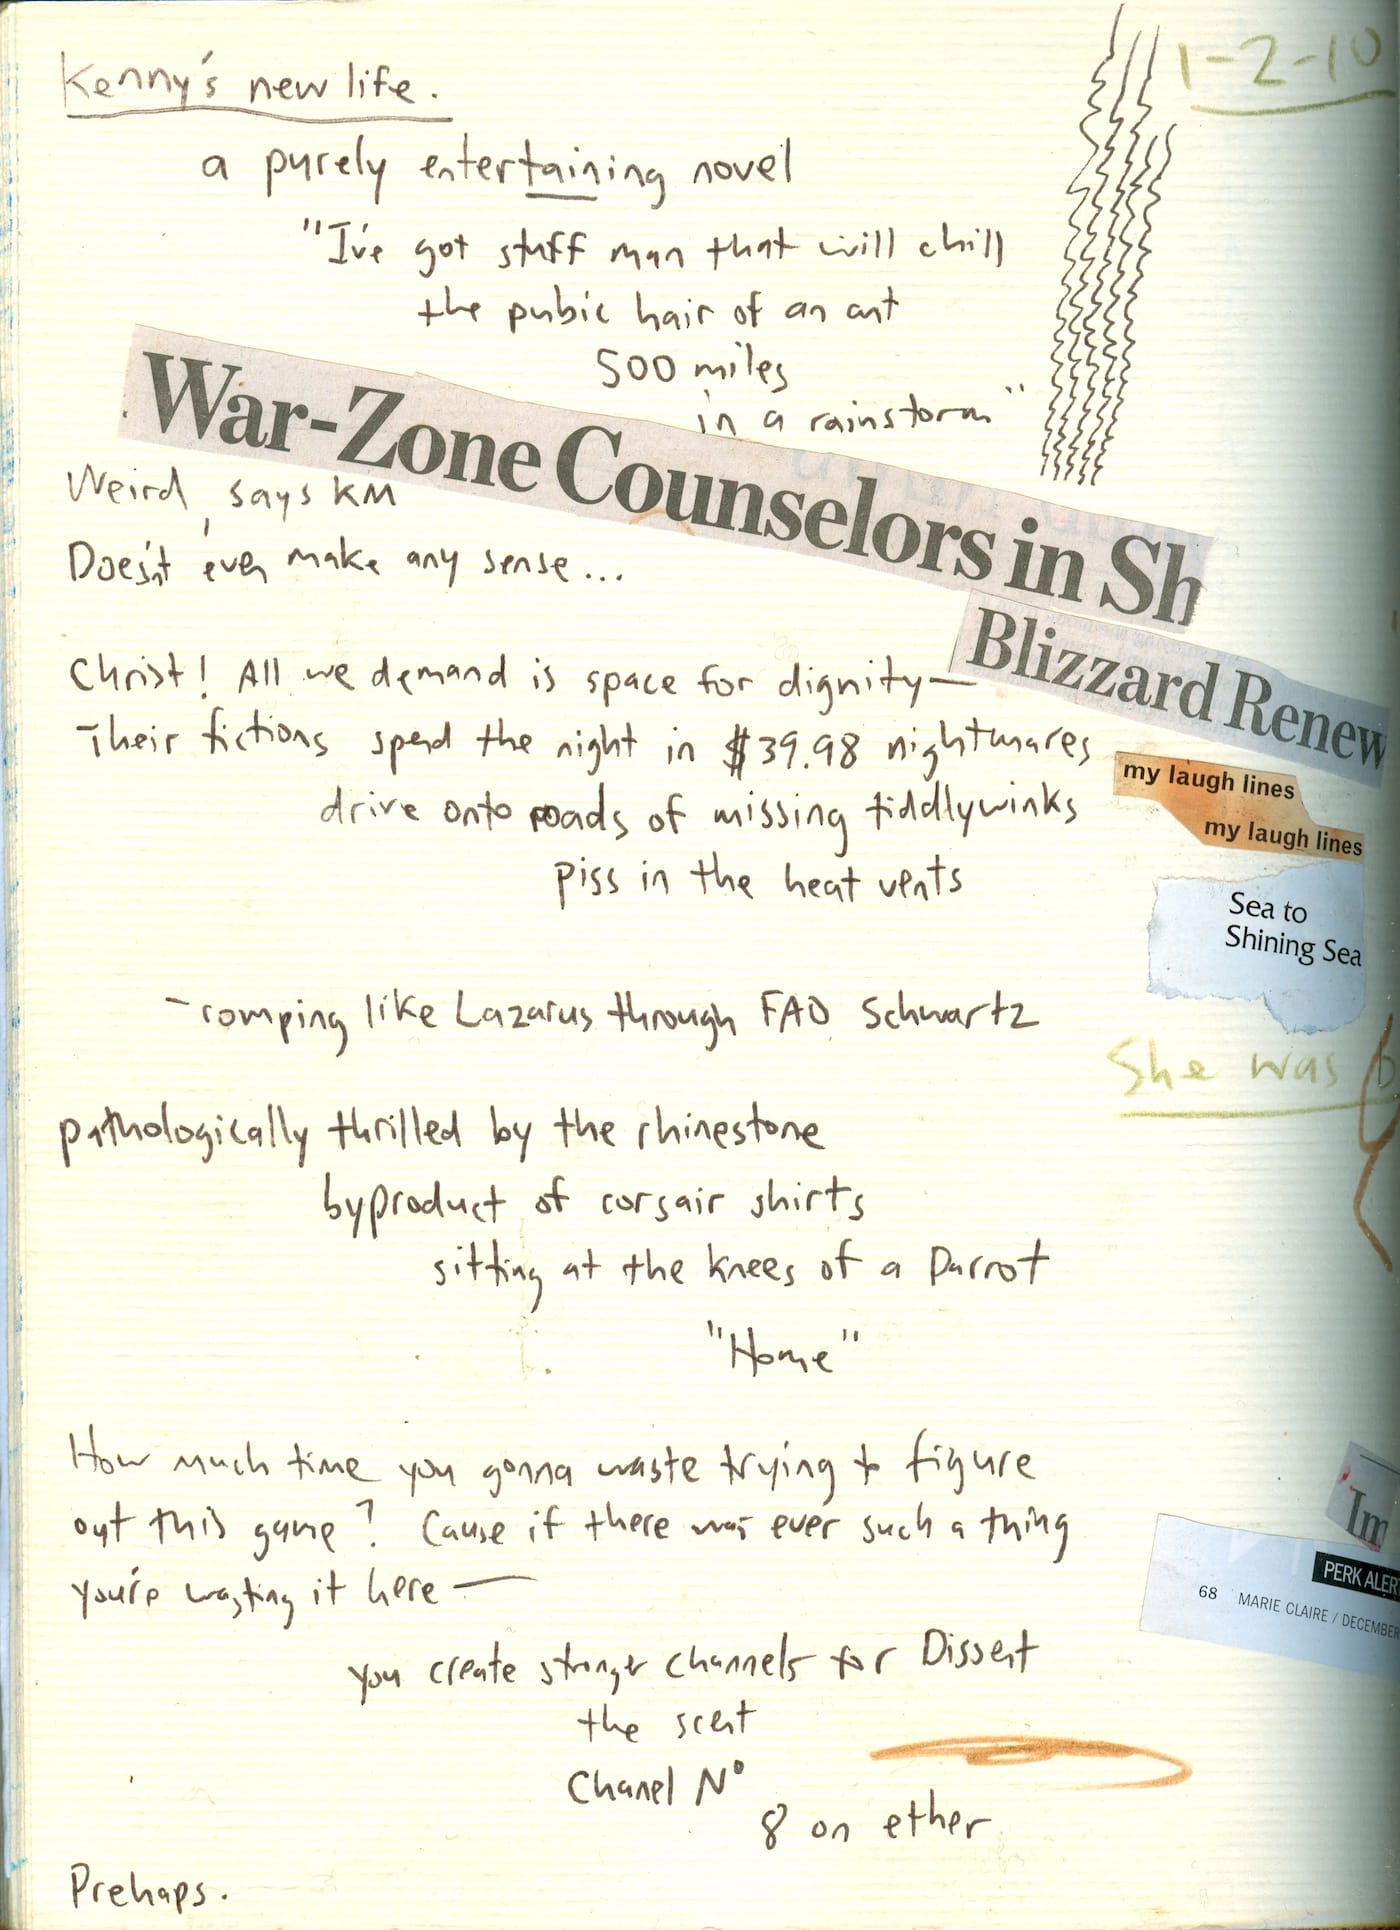 Kenny's new life.
1-2-10
a purely entertaining novel
"I've got stuff man that will chill
the pubic hair of an ant
500 miles
in a rainstorm"
War-Zone Counselors in Sh
Weird, says KM
Doesn't even make any sense...
Blizzard Renew
Christ! All we demand is space for dignity—
Their fictions spend the night in $39.98 nightmares
my laugh lines
drive onto roads of missing tiddlywinks
my laugh lines
piss in the heat vents
Sea to
Shining Sea
-romping like Lazarus through FAO Schwartz
She was
pathologically thrilled by the rhinestone
byproduct of corsair shirts
sitting at the knees of a Parrot
"Home"
How much time you gonna waste trying to figure
out this game? Cause if there was ever such a thing
you're wasting it here—
Im
PERK ALER
68 MARIE CLAIRE / DECEMBER
you create stronger channels for Dissent
the scent
Chanel N°
8 on ether
Prehaps.